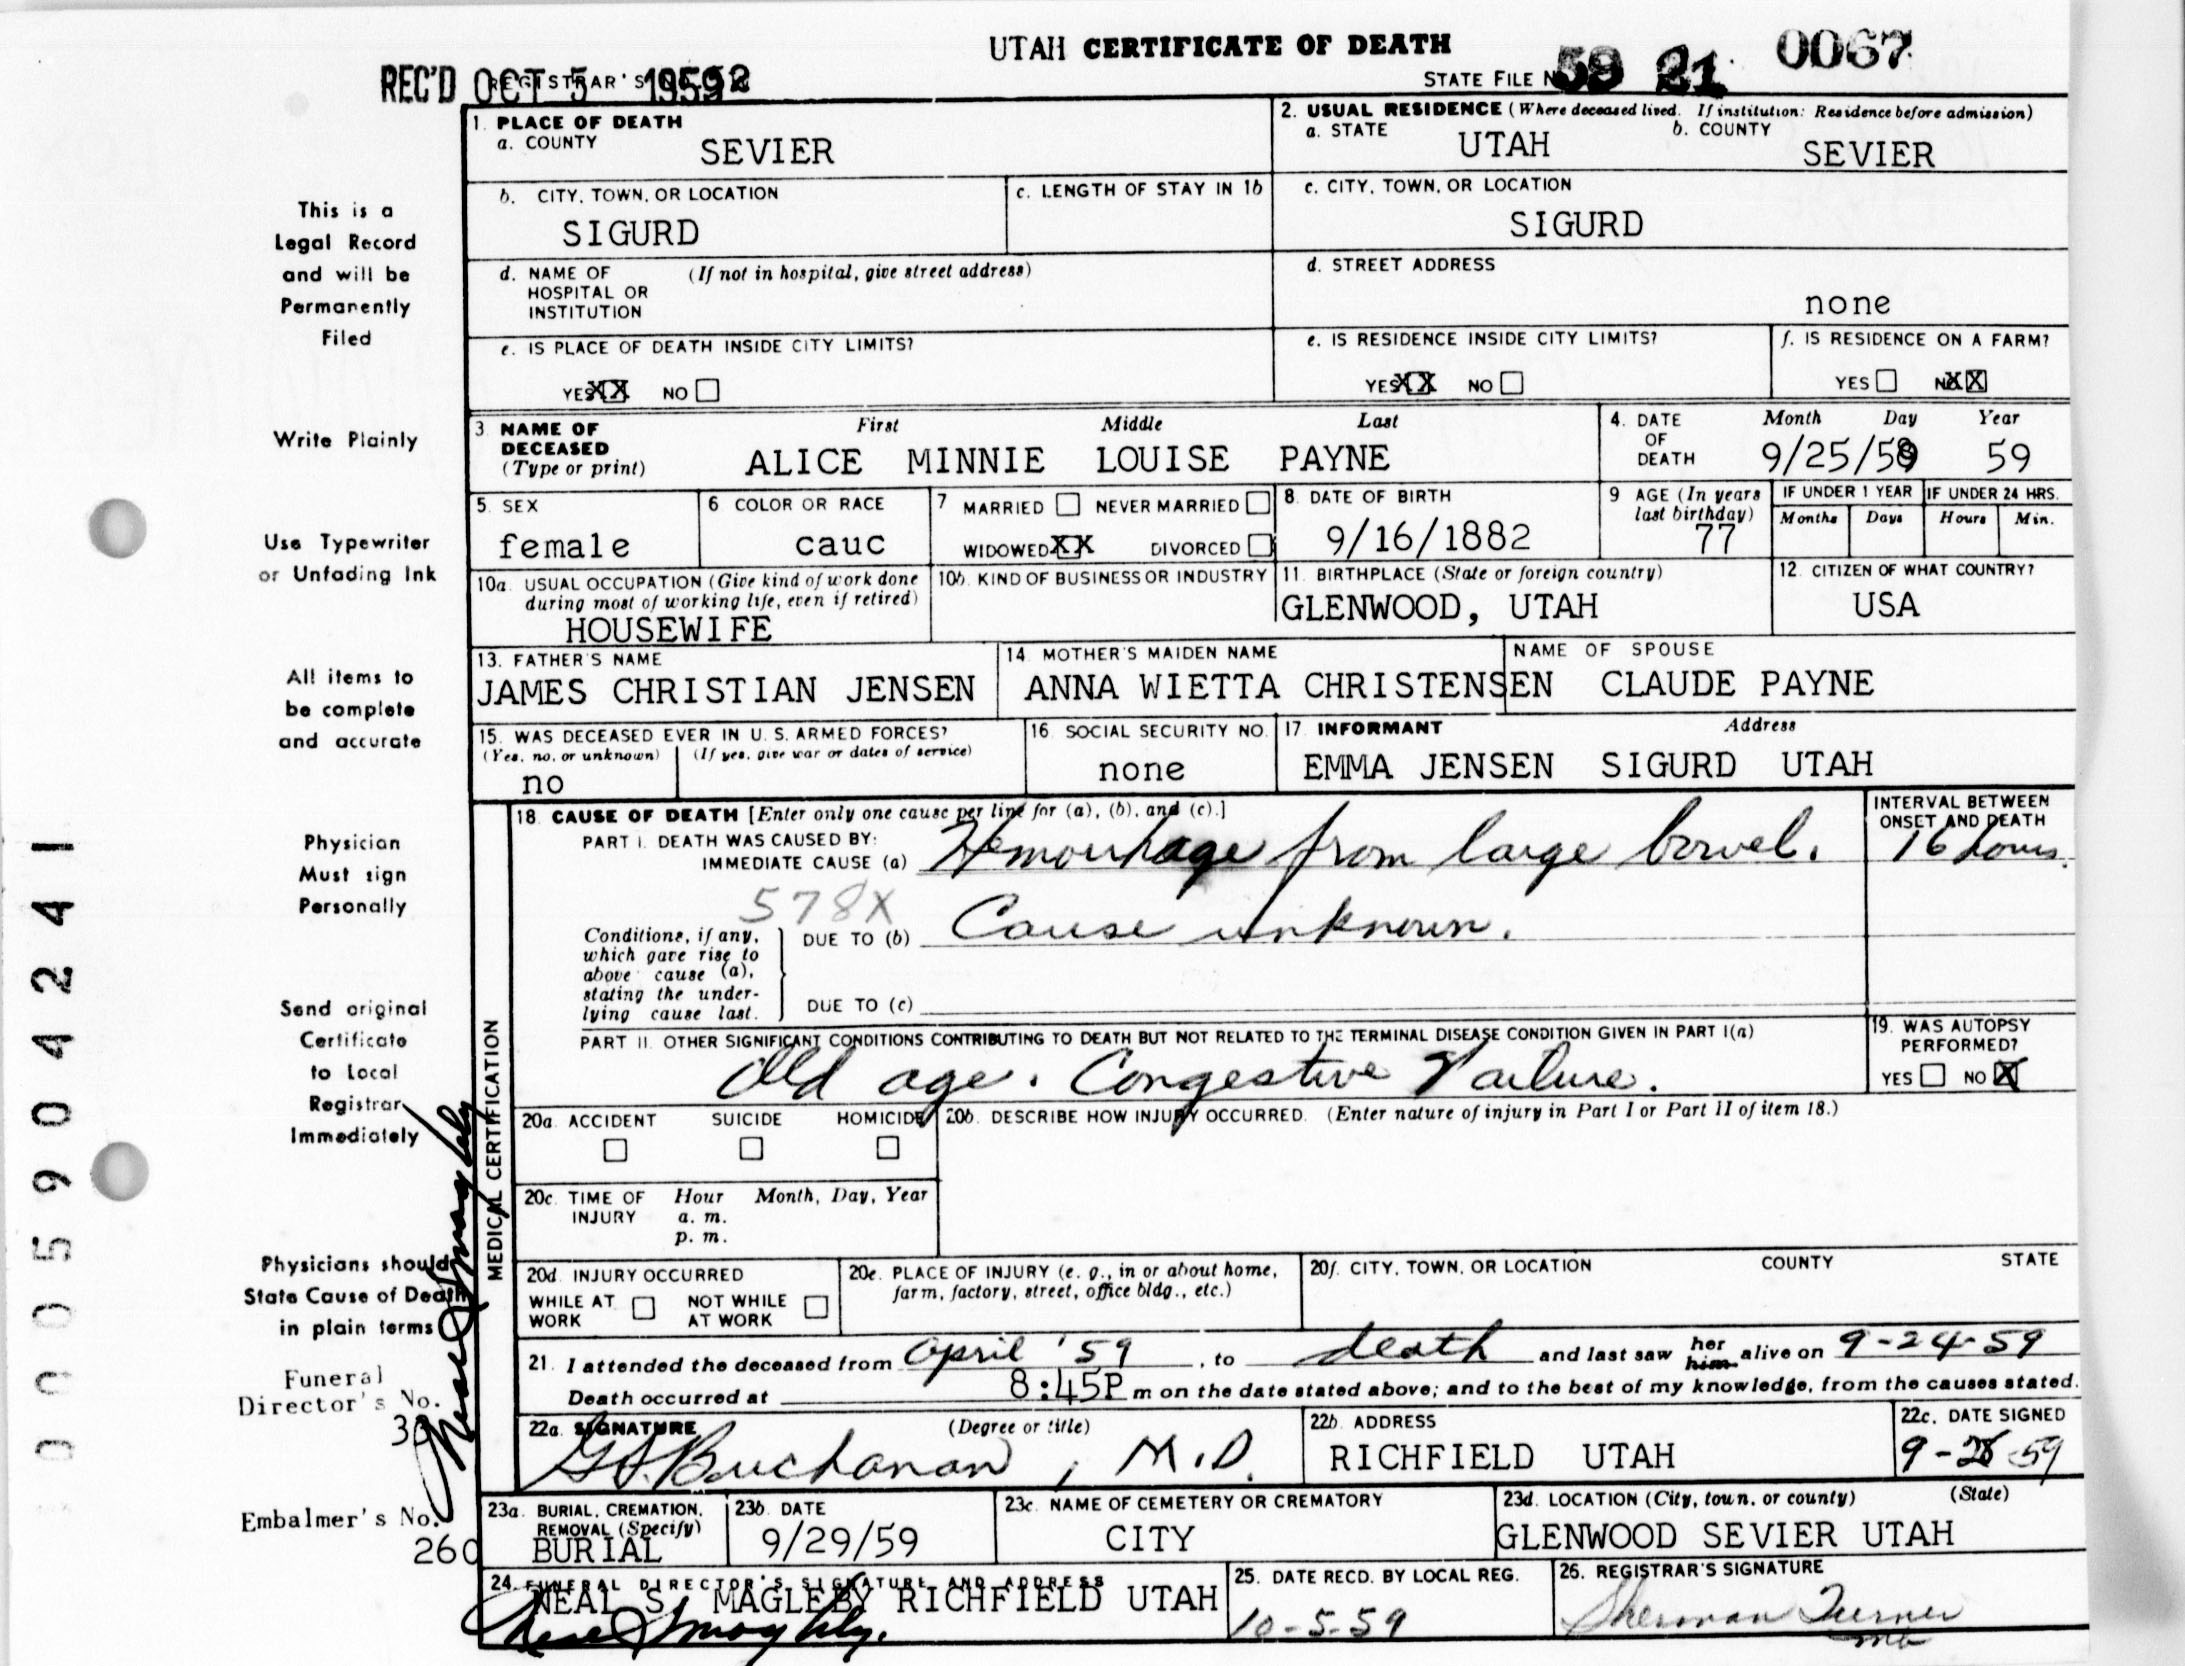 UTAH CERTIFICATE OF DEATH
REC'D OCT 5 1959
REGISTRAR'S
92
STATE FILE NO. 59 21 0067
1. PLACE OF DEATH
a. COUNTY
SEVIER
2. USUAL RESIDENCE (Where deceased lived. If institution: Residence before admission)
a. STATE
UTAH
b. COUNTY
SEVIER
b. CITY, TOWN, OR LOCATION
SIGURD
c. LENGTH OF STAY IN 1b
c. CITY, TOWN, OR LOCATION
SIGURD
d. NAME OF HOSPITAL OR INSTITUTION
(If not in hospital, give street address)
d. STREET ADDRESS
none
e. IS PLACE OF DEATH INSIDE CITY LIMITS?
YES XX NO
e. IS RESIDENCE INSIDE CITY LIMITS?
YES XX NO
f. IS RESIDENCE ON A FARM?
YES NO XX
3. NAME OF DECEASED (Type or print)
First Middle Last
ALICE MINNIE LOUISE PAYNE
4. DATE OF DEATH
Month Day Year
9/25/59 59
5. SEX
female
6. COLOR OR RACE
cauc
7. MARRIED NEVER MARRIED
WIDOWED XX DIVORCED
8. DATE OF BIRTH
9/16/1882
9. AGE (In years last birthday)
77
IF UNDER 1 YEAR
Months Days
IF UNDER 24 HRS.
Hours Min.
10a. USUAL OCCUPATION (Give kind of work done during most of working life, even if retired)
HOUSEWIFE
10b. KIND OF BUSINESS OR INDUSTRY
11. BIRTHPLACE (State or foreign country)
GLENWOOD, UTAH
12. CITIZEN OF WHAT COUNTRY?
USA
13. FATHER'S NAME
JAMES CHRISTIAN JENSEN
14. MOTHER'S MAIDEN NAME
ANNA WIETTA CHRISTENSEN
NAME OF SPOUSE
CLAUDE PAYNE
15. WAS DECEASED EVER IN U. S. ARMED FORCES?
(Yes, no, or unknown) (If yes, give war or dates of service)
no
16. SOCIAL SECURITY NO.
none
17. INFORMANT Address
EMMA JENSEN SIGURD UTAH
MEDICAL CERTIFICATION
18. CAUSE OF DEATH [Enter only one cause per line for (a), (b), and (c).]
PART I. DEATH WAS CAUSED BY:
IMMEDIATE CAUSE (a) Hemorrhage from large bowel.
INTERVAL BETWEEN ONSET AND DEATH
16 hours.
578X
Conditions, if any, which gave rise to above cause (a), stating the underlying cause last.
DUE TO (b) Cause unknown.
DUE TO (c)
PART II. OTHER SIGNIFICANT CONDITIONS CONTRIBUTING TO DEATH BUT NOT RELATED TO THE TERMINAL DISEASE CONDITION GIVEN IN PART I(a)
Old age. Congestive Failure.
19. WAS AUTOPSY PERFORMED?
YES NO X
20a. ACCIDENT SUICIDE HOMICIDE
20b. DESCRIBE HOW INJURY OCCURRED. (Enter nature of injury in Part I or Part II of item 18.)
20c. TIME OF INJURY
Hour Month, Day, Year
a. m.
p. m.
20d. INJURY OCCURRED
WHILE AT WORK NOT WHILE AT WORK
20e. PLACE OF INJURY (e. g., in or about home, farm, factory, street, office bldg., etc.)
20f. CITY, TOWN, OR LOCATION COUNTY STATE
21. I attended the deceased from April '59, to death and last saw her him alive on 9-24-59
Death occurred at 8:45P m on the date stated above; and to the best of my knowledge, from the causes stated.
22a. SIGNATURE (Degree or title)
Buchanan, M.D.
22b. ADDRESS
RICHFIELD UTAH
22c. DATE SIGNED
9-28-59
23a. BURIAL, CREMATION, REMOVAL (Specify)
BURIAL
23b. DATE
9/29/59
23c. NAME OF CEMETERY OR CREMATORY
CITY
23d. LOCATION (City, town, or county) (State)
GLENWOOD SEVIER UTAH
24. FUNERAL DIRECTOR'S SIGNATURE AND ADDRESS
NEAL S. MAGLEBY RICHFIELD UTAH
Neal S Magleby.
25. DATE RECD. BY LOCAL REG.
10-5-59
26. REGISTRAR'S SIGNATURE
Sherman Turner
This is a
Legal Record
and will be
Permanently
Filed
Write Plainly
Use Typewriter
or Unfading Ink
All items to
be complete
and accurate
Physician
Must sign
Personally
Send original
Certificate
to Local
Registrar
Immediately
Physicians should
State Cause of Death
in plain terms
Funeral
Director's No.
Embalmer's No.
260
Neal S Magleby
0005904241